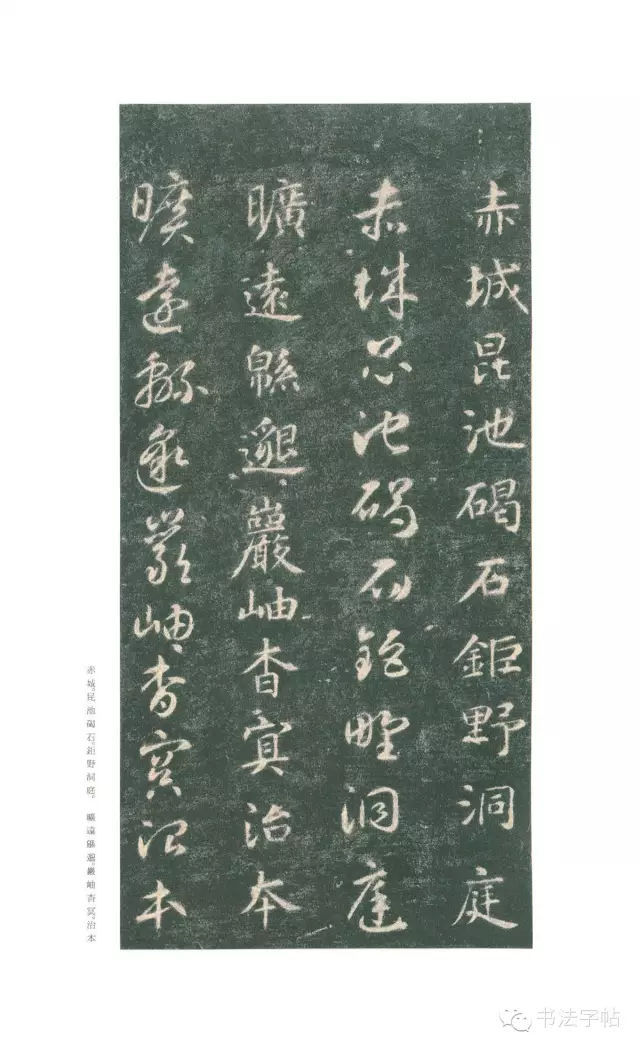 赤城昆池碣石鉅野洞庭
赤城昆池碣石鉅野洞庭
曠遠緜邈巖岫杳冥治本
曠遠緜邈巖岫杳冥治本
赤城。昆池碣石。鉅野洞庭。 曠遠緜邈。巖岫杳冥。治本
书法字帖